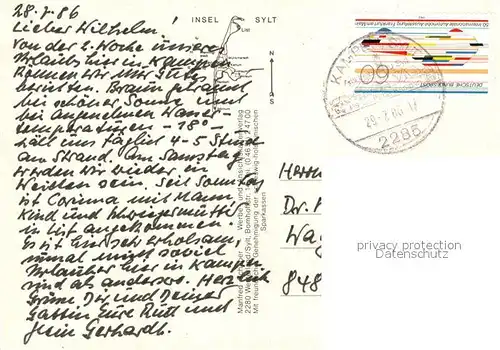 28.7.86
Lieber Wilhelm!
Von der 2. Woche unseres
Urlaubs hier in Kampen
können wir nur Gutes
berichten. Braun gebrannt
bei schöner Sonne und
bei angenehmen Wasser
temperaturen - 18° -
uns täglich 4-5 Stund
am Strand. Am Samstag
werden wir wieder in
Weiden sein. Seit Sonntag
ist Corinna mit Mann,
Kind und Schwiegermutti
in List angekommen.
Es ist einfach erholsam,
zumal nicht soviel
Urlauber hier in Kampen
sind als anderswo. Herzliche
Grüße Dir und Deiner
Gattin Eure Ruth und
Gerhardt.
INSEL SYLT
List
N
S
Manfred
2280 Westerland/Sylt, Bomhoffstr.
Mit freundlicher Genehmigung der schleswig-holsteinischen
Sparkassen
50 Internationale Automobil-Ausstellung Frankfurt am Main
DEUTSCHE BUNDESPOST
KAMPEN
2285
Herrn
Dr.
Wa
848
privacy protection
Datenschutz